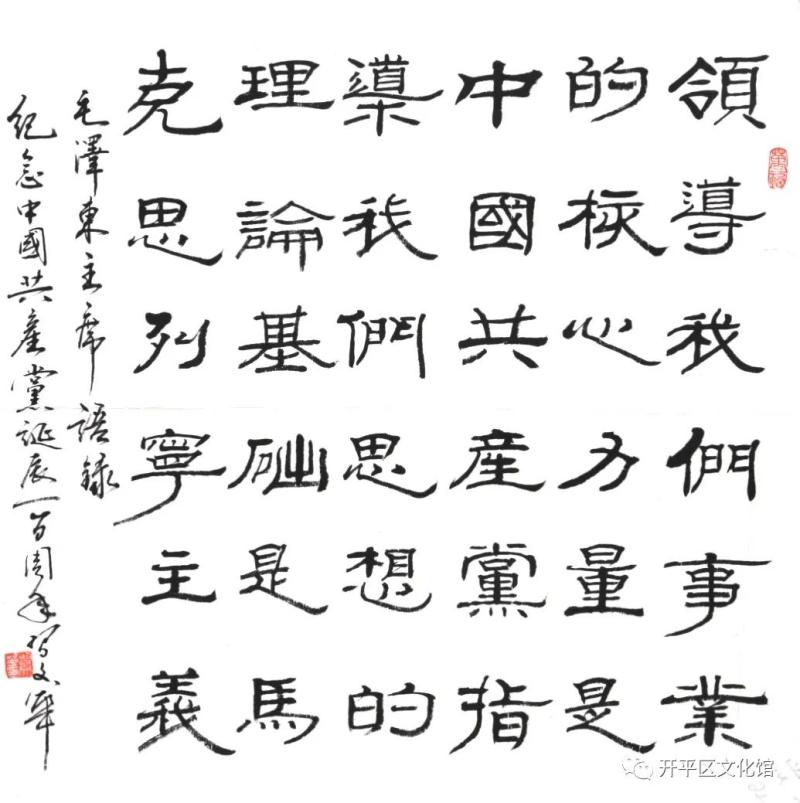 領導我們事業
的核心力量是
中國共産黨指
導我們思想的
理論基础是馬
克思列寧主義
毛澤東主席語錄
紀念中國共產黨誕辰一百周年
开平区文化馆